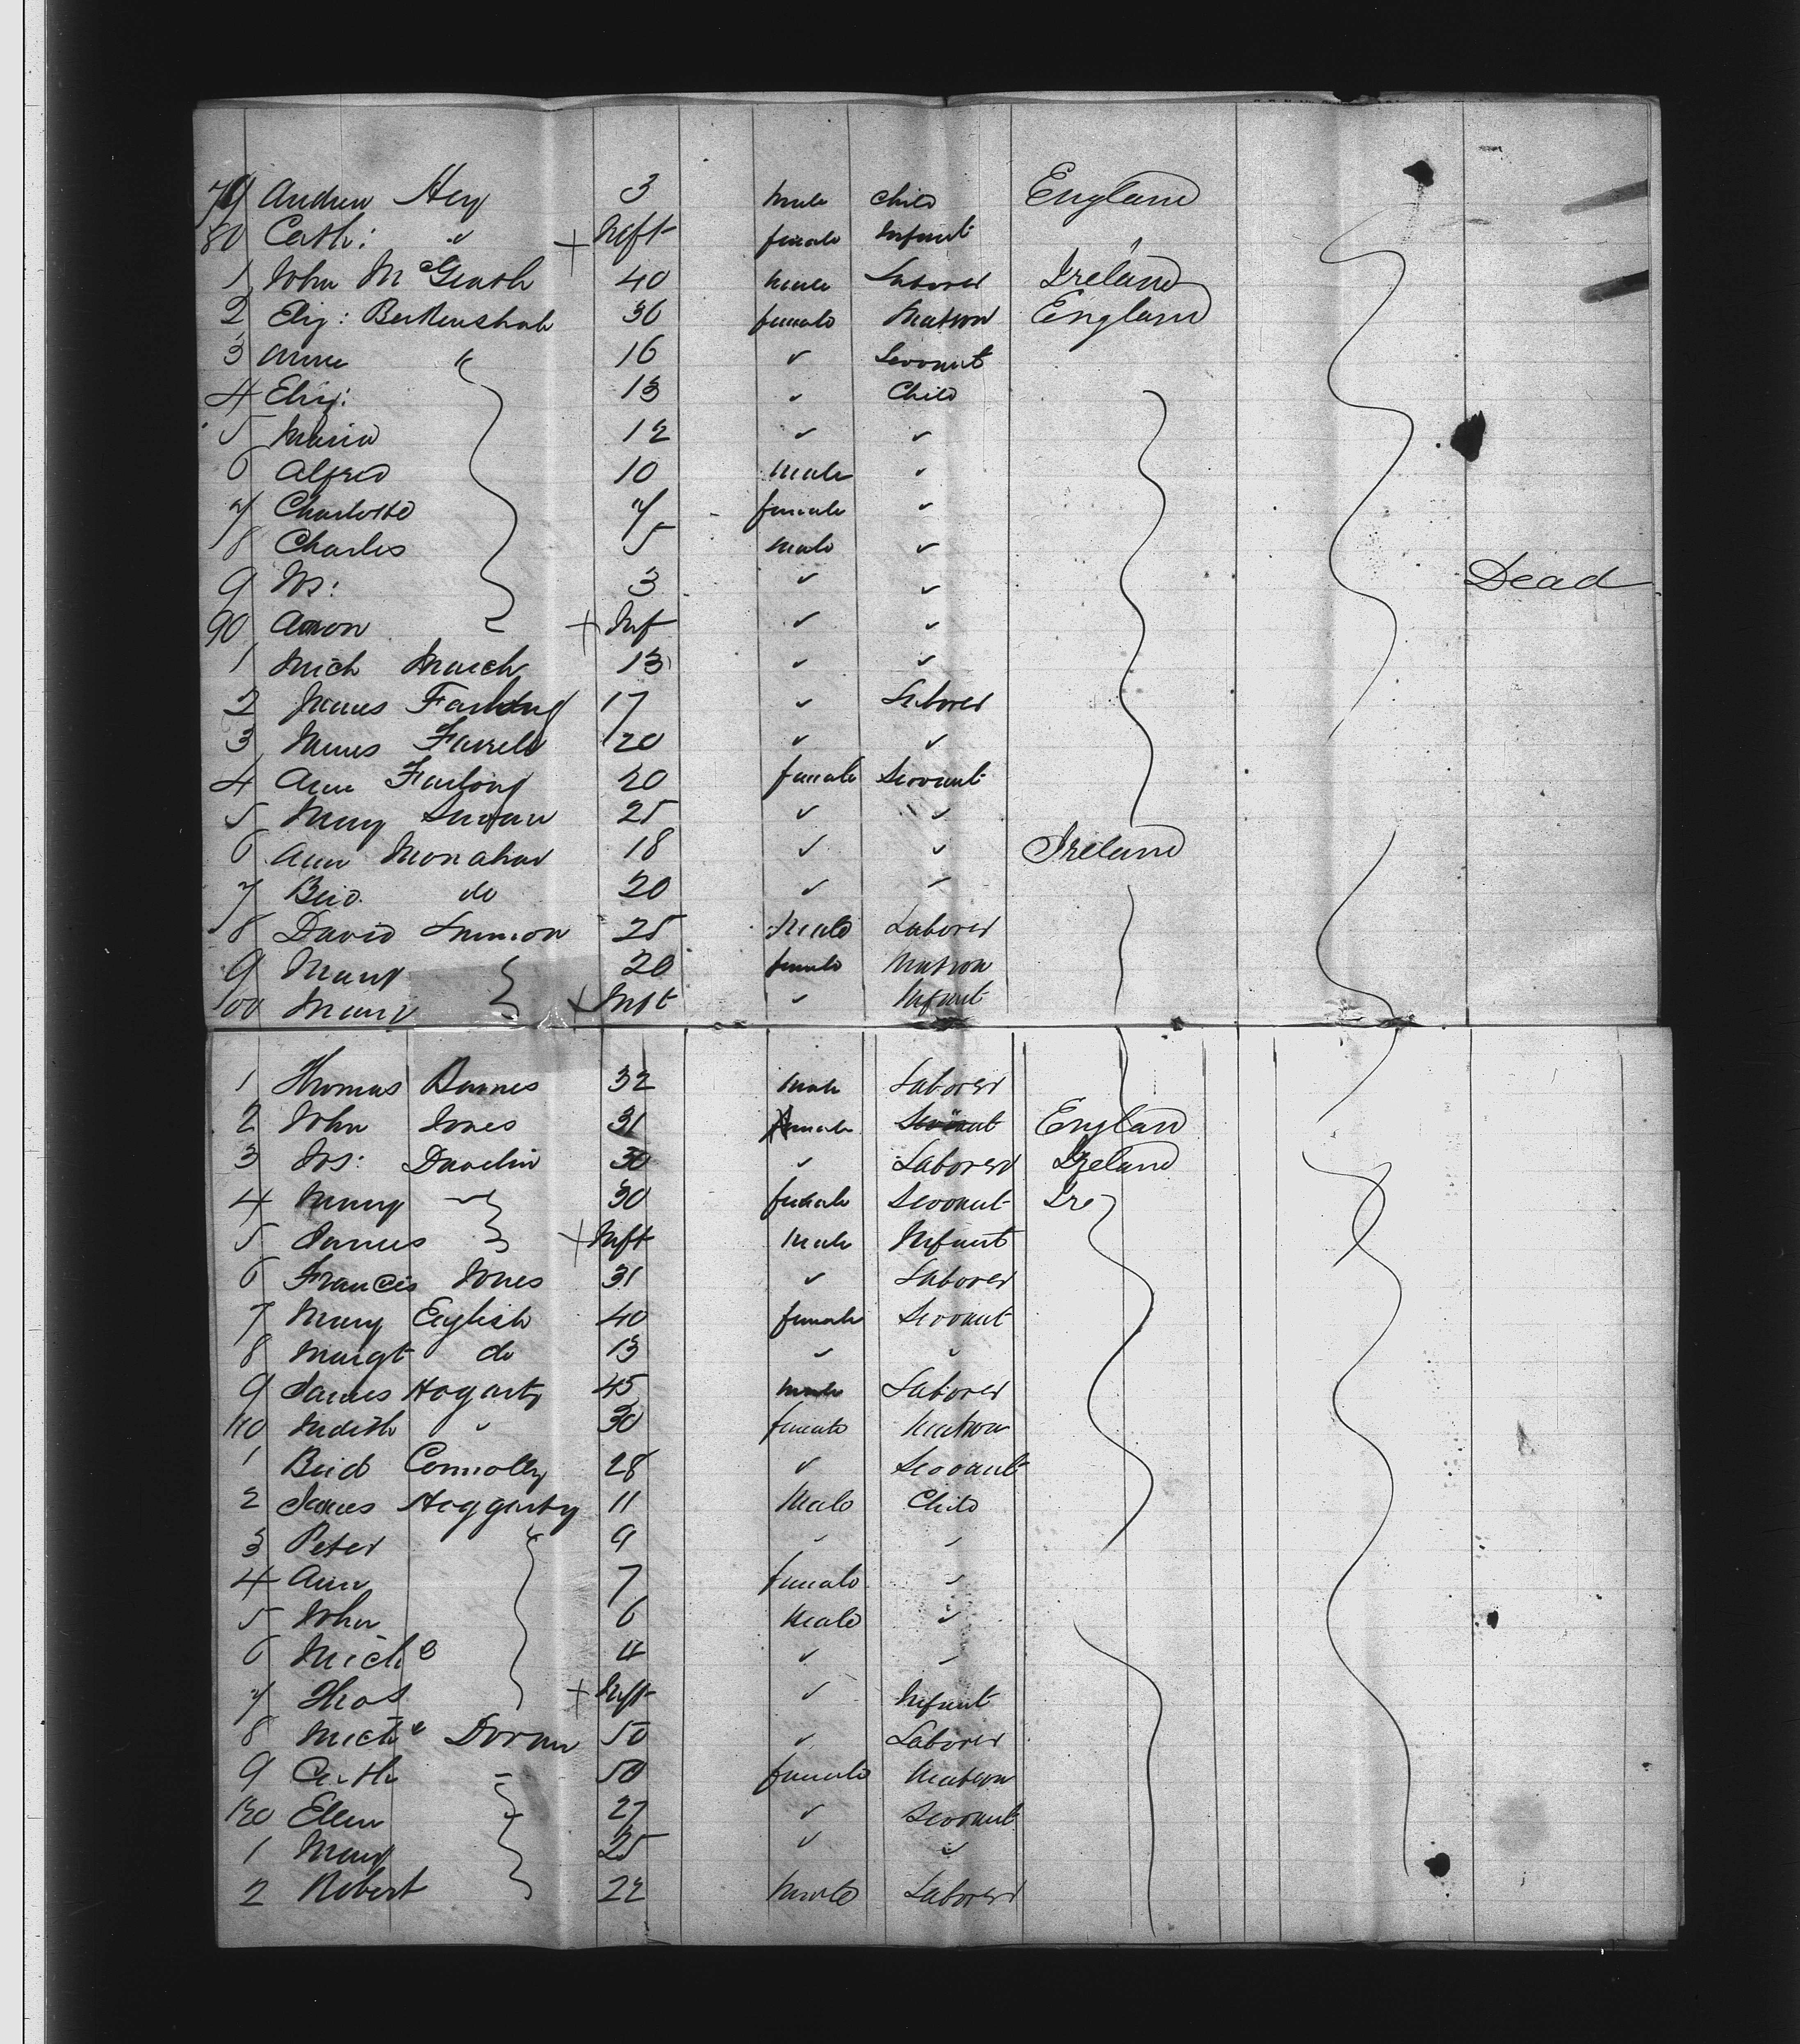 79 Andrew Hey 3 male Child England
80 Cath: " + Inft female Infant
1 John McGrath 40 male Laborer Ireland
2 Eliz: Berkenshaw 36 female Matron England
3 Anne " 16 " Servant
4 Eliz: 13 " Child
5 Maria 12 " "
6 Alfred 10 male "
7 Charlotte 7 female "
8 Charles 5 male "
9 Js: 3 " " Dead
90 Aaron + Inf " "
1 Mich 13 " "
2 James 17 " Laborer
3 James Farrell 20 " "
4 Ann Furlong 20 female Servant
5 Mary 25 " "
6 Ann Monahan 18 " " Ireland
7 Brid. do 20 " "
8 David 25 Male Laborer
9 Mary 20 female Matron
100 Mary + Inft " Infant
1 Thomas Barnes 32 Male Laborer
2 John Jones 31 male England
3 Js: Devlin 30 " Laborer Ireland
4 Mary " 30 female Servant Ire
5 James + Inft Male Infant
6 Francis Jones 31 " Laborer
7 Mary English 40 female Servant
8 Margt do 13 " "
9 James Hogarty 45 male Laborer
110 Judith " 30 female Matron
1 Brid Connolly 28 " Servant
2 James Hoggarty 11 Male Child
3 Peter 9 " "
4 Ann 7 female "
5 John 6 Male "
6 Michl 4 " "
7 Thos + Inft " Infant
8 Michl Doran 50 " Laborer
9 Cath - 50 female Matron
120 Ellen 27 " Servant
1 Mary 25 " "
2 Robert 22 Male Laborer